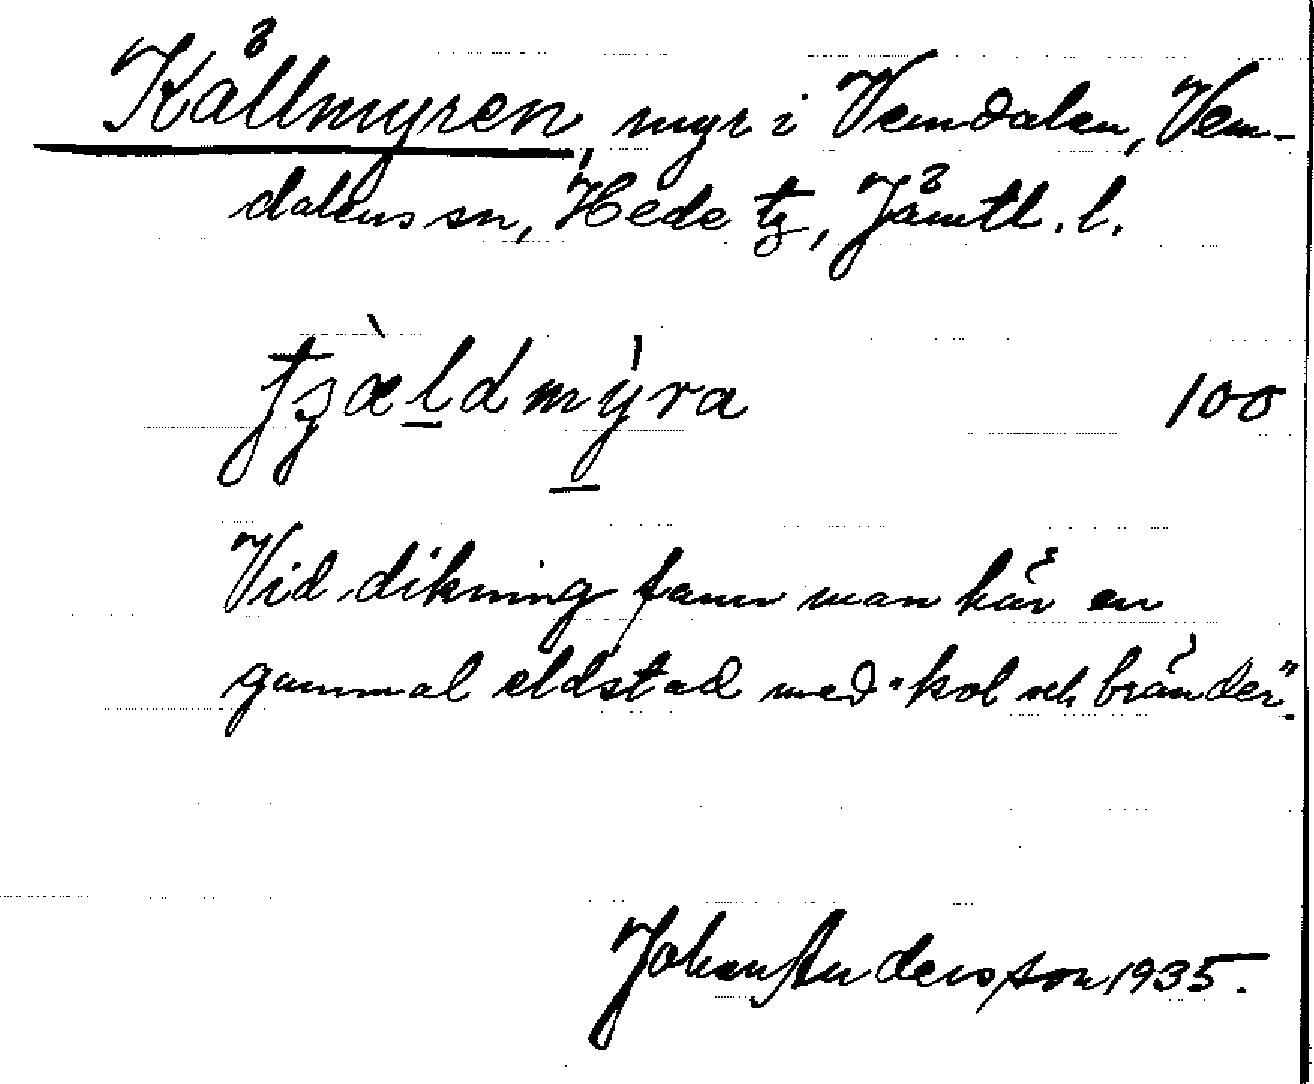 Källmyren, myr i Vemdalen, Vem-
dalens sn, Hede tg, Jämtl. l.
tʒæ̀ldmýra 100
Vid dikning fann man här en
gammal eldstad med "kol och bränder".
Johan Andersson 1935.